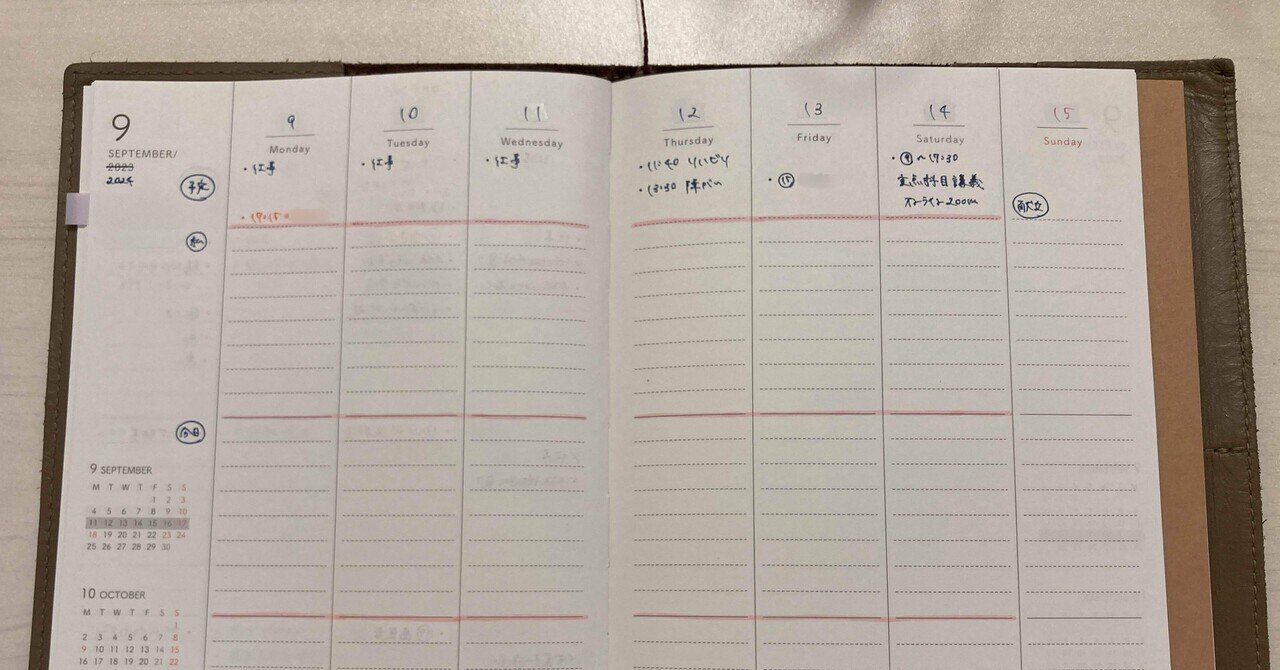 9
SEPTEMBER/
2023
2024
予定
9
Monday
・仕事
・17:15
10
Tuesday
・仕事
11
Wednesday
・仕事
12
Thursday
・11:40 リハビリ
・13:30
13
Friday
・⑮
14
Saturday
・⑨〜17:30
重点科目講義
オンライン zoom
15
Sunday
献立
私
今日
9 SEPTEMBER
M T W T F S S
1 2 3
4 5 6 7 8 9 10
11 12 13 14 15 16 17
18 19 20 21 22 23 24
25 26 27 28 29 30
10 OCTOBER
M T W T F S S
1
2 3 4 5 6 7 8
9 10 11 12 13 14 15
16 17 18 19 20 21 22